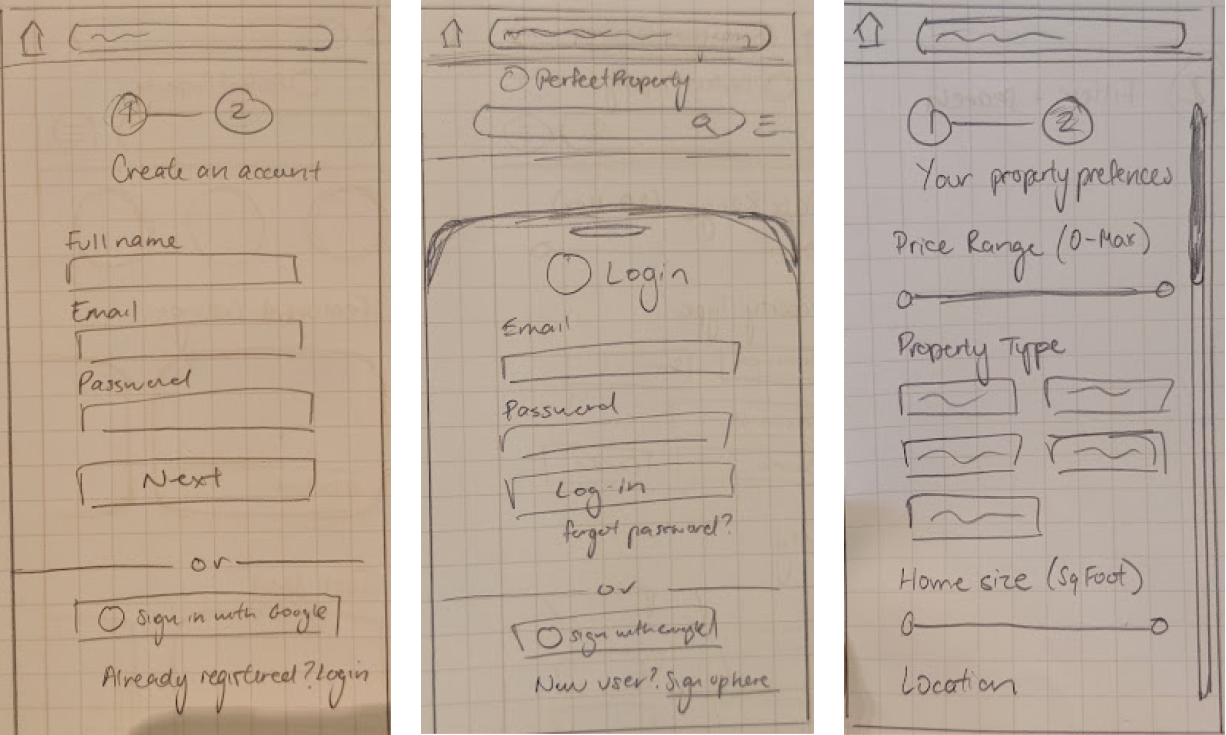 1 2
Create an account
Full name
Email
Password
Next
or
Sign in with Google
Already registered? Login
PerfectProperty
Login
Email
Password
Log-in
forgot password?
or
Sign with
New user? Sign up here
1 2
Your property prefences
Price Range (0-Max)
Property Type
Home size (Sq Foot)
Location